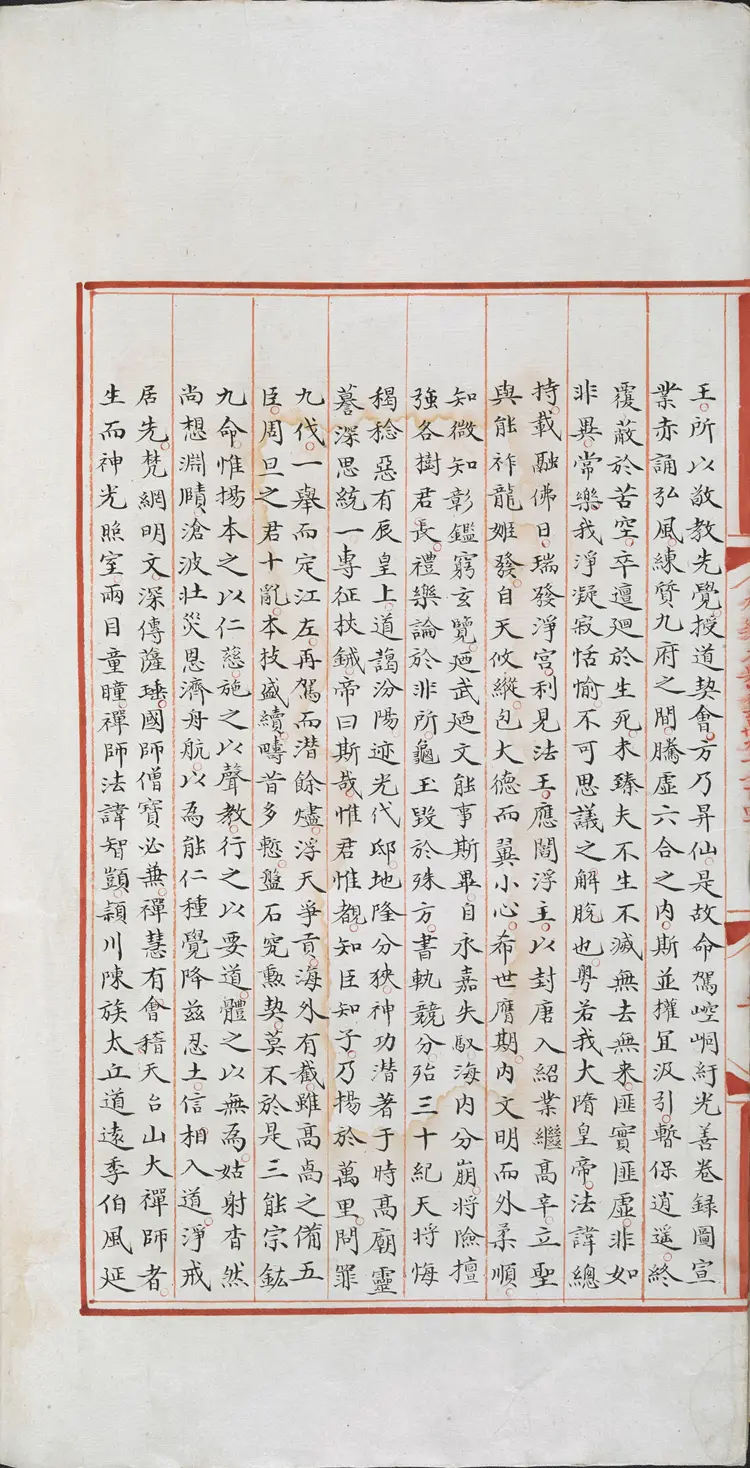 王所以敬教先覺授道契會方乃昇仙是故命駕崆峒紆光善卷録圖宣
業赤誦弘風練質九府之間騰虛六合之內斯並權宜汲引暫保逍遥終
覆蔽於苦空卒邅廻於生死未臻夫不生不滅無去無来匪實匪虛非如
非異常樂我淨凝寂恬愉不可思議之解脫也粤若我大隋皇帝法諱總
持載融佛日瑞發淨宫利見法王應閻浮主以封唐入紹業繼髙辛立聖
與能祚龍姬發自天攸縱包大德而翼小心希世膺期内文明而外柔順
知微知彰鑑窮玄覽廼武廼文能事斯畢自永嘉失馭海内分崩将險擅
強各樹君長禮樂論於非所龜玉毀於殊方書軌競分殆三十紀天将悔
稔惡有辰皇上道藹汾陽迹光代邸地隆分狹神功潛著于時髙廟靈
謩深思統一專征扶鉞帝曰斯哉惟君惟覩知臣知子乃揚於萬里問罪
九伐一舉而定江左再駕而潜餘燼浮天爭貢海外有截雖髙卨之備五
臣周旦之君十亂本技盛續疇昔多慙盤石究勲契莫不於是三能宗鉉
九命惟揚本之以仁慈施之以聲教行之以要道體之以無為姑射杳然
尚想淵賾滄波壮災恩濟舟航以為能仁種覺降兹忍土信相入道淨戒
居先梵網明文深傳薩埵國師僧寶必兼禪慧有會稽天台山大禪師者
生而神光照室兩目童瞳禪師法諱智顗潁川陳族太丘道遠季伯風延